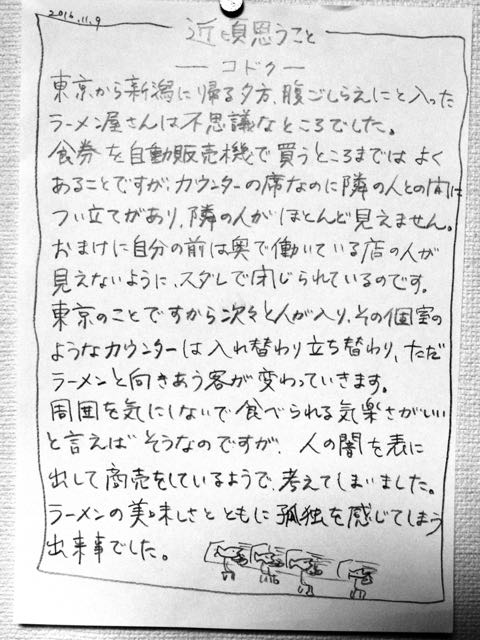 2016.11.9
近頃思うこと
—コドク—
東京から新潟に帰る夕方、腹ごしらえにと入った
ラーメン屋さんは不思議なところでした。
食券を自動販売機で買うところまではよく
あることですが、カウンターの席なのに隣の人との間に
つい立てがあり、隣の人がほとんど見えません。
おまけに自分の前は奥で働いている店の人が
見えないように、スダレで閉じられているのです。
東京のことですから次々と人が入り、その個室の
ようなカウンターは入れ替わり立ち替わり、ただ
ラーメンと向きあう客が変わっていきます。
周囲を気にしないで食べられる気楽さがいい
と言えばそうなのですが、人の闇を表に
出して商売をしているようで、考えてしまいました。
ラーメンの美味しさとともに孤独を感じてしまう
出来事でした。